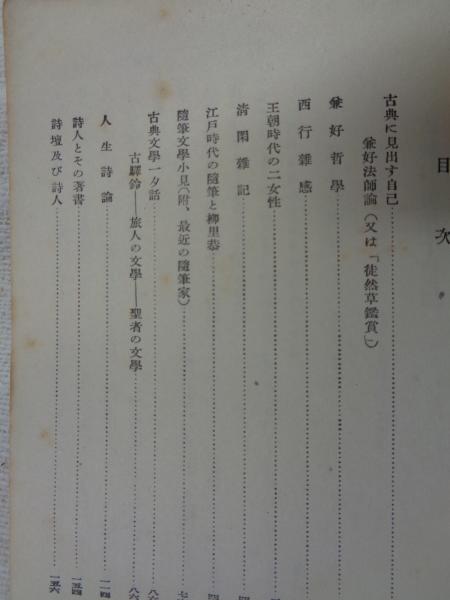 目次
古典に見出す自己
兼好法師論(又は「徒然草鑑賞」)
兼好哲學
西行雜感
王朝時代の二女性
清閑雜記
江戸時代の隨筆と柳里恭
隨筆文學小見(附、最近の隨筆家)
古典文學一夕話
古驛鈴——旅人の文學——聖者の文學
人生詩論……一一四
詩人とその著書……一五四
詩壇及び詩人……一五六